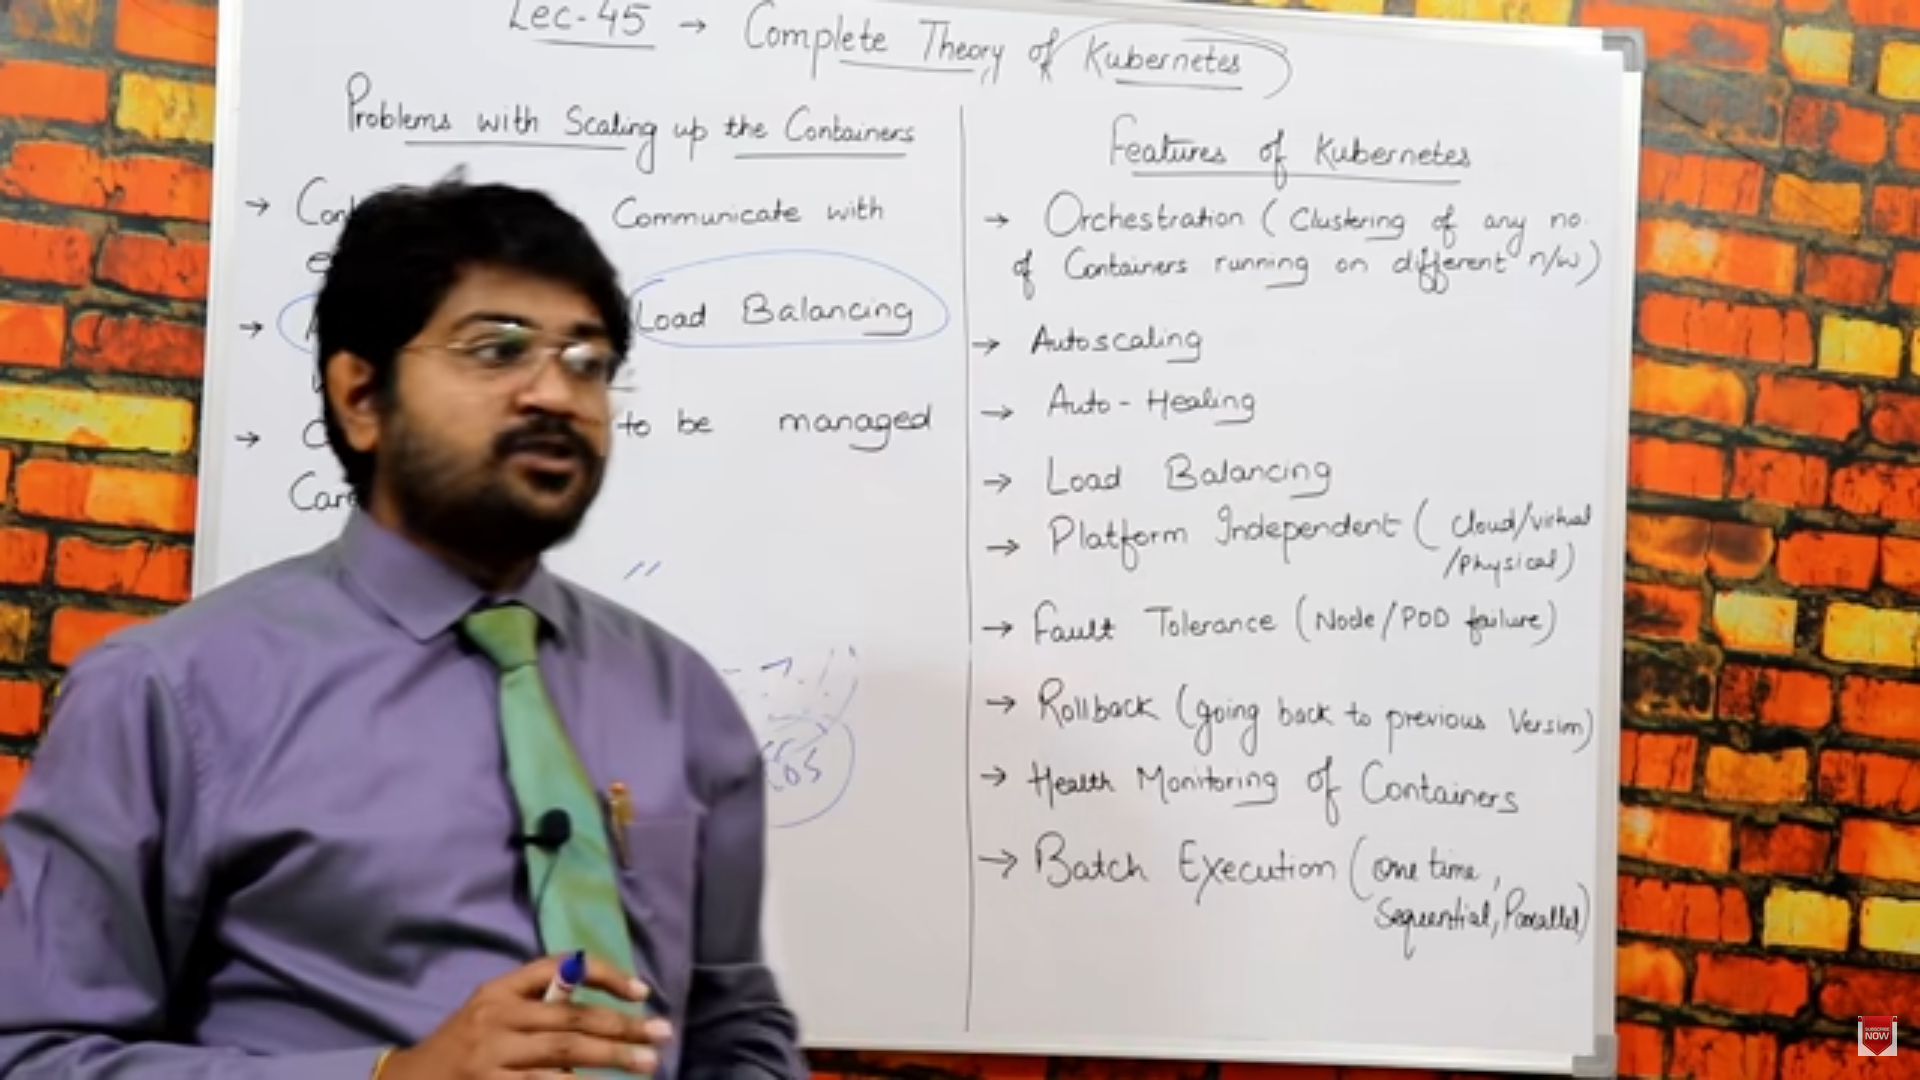 Lec-45 → Complete Theory of Kubernetes
Problems with Scaling up the Containers
→ Communicate with
→ Load Balancing
→ to be managed
Features of Kubernetes
→ Orchestration (Clustering of any no.
of Containers running on different n/w)
→ Autoscaling
→ Auto-Healing
→ Load Balancing
→ Platform Independent (Cloud/virtual
/Physical)
→ Fault Tolerance (Node/POD failure)
→ Rollback (going back to previous Version)
→ Health Monitoring of Containers
→ Batch Execution (One time,
Sequential, Parallel)
SUBSCRIBE
NOW